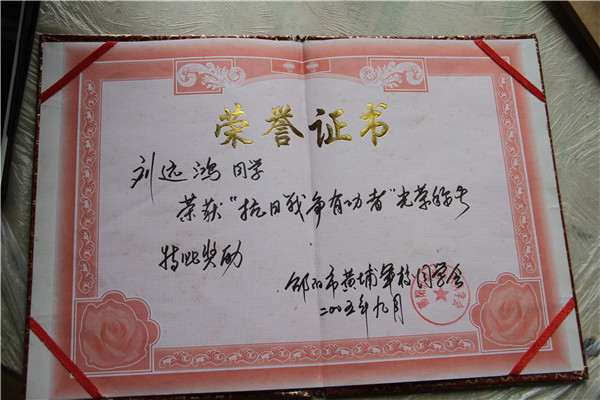 荣誉证书
刘远鸿同学
荣获“抗日战争有功者”光荣称号
特此奖励
邵阳市黄埔军校同学会
二00五年九月